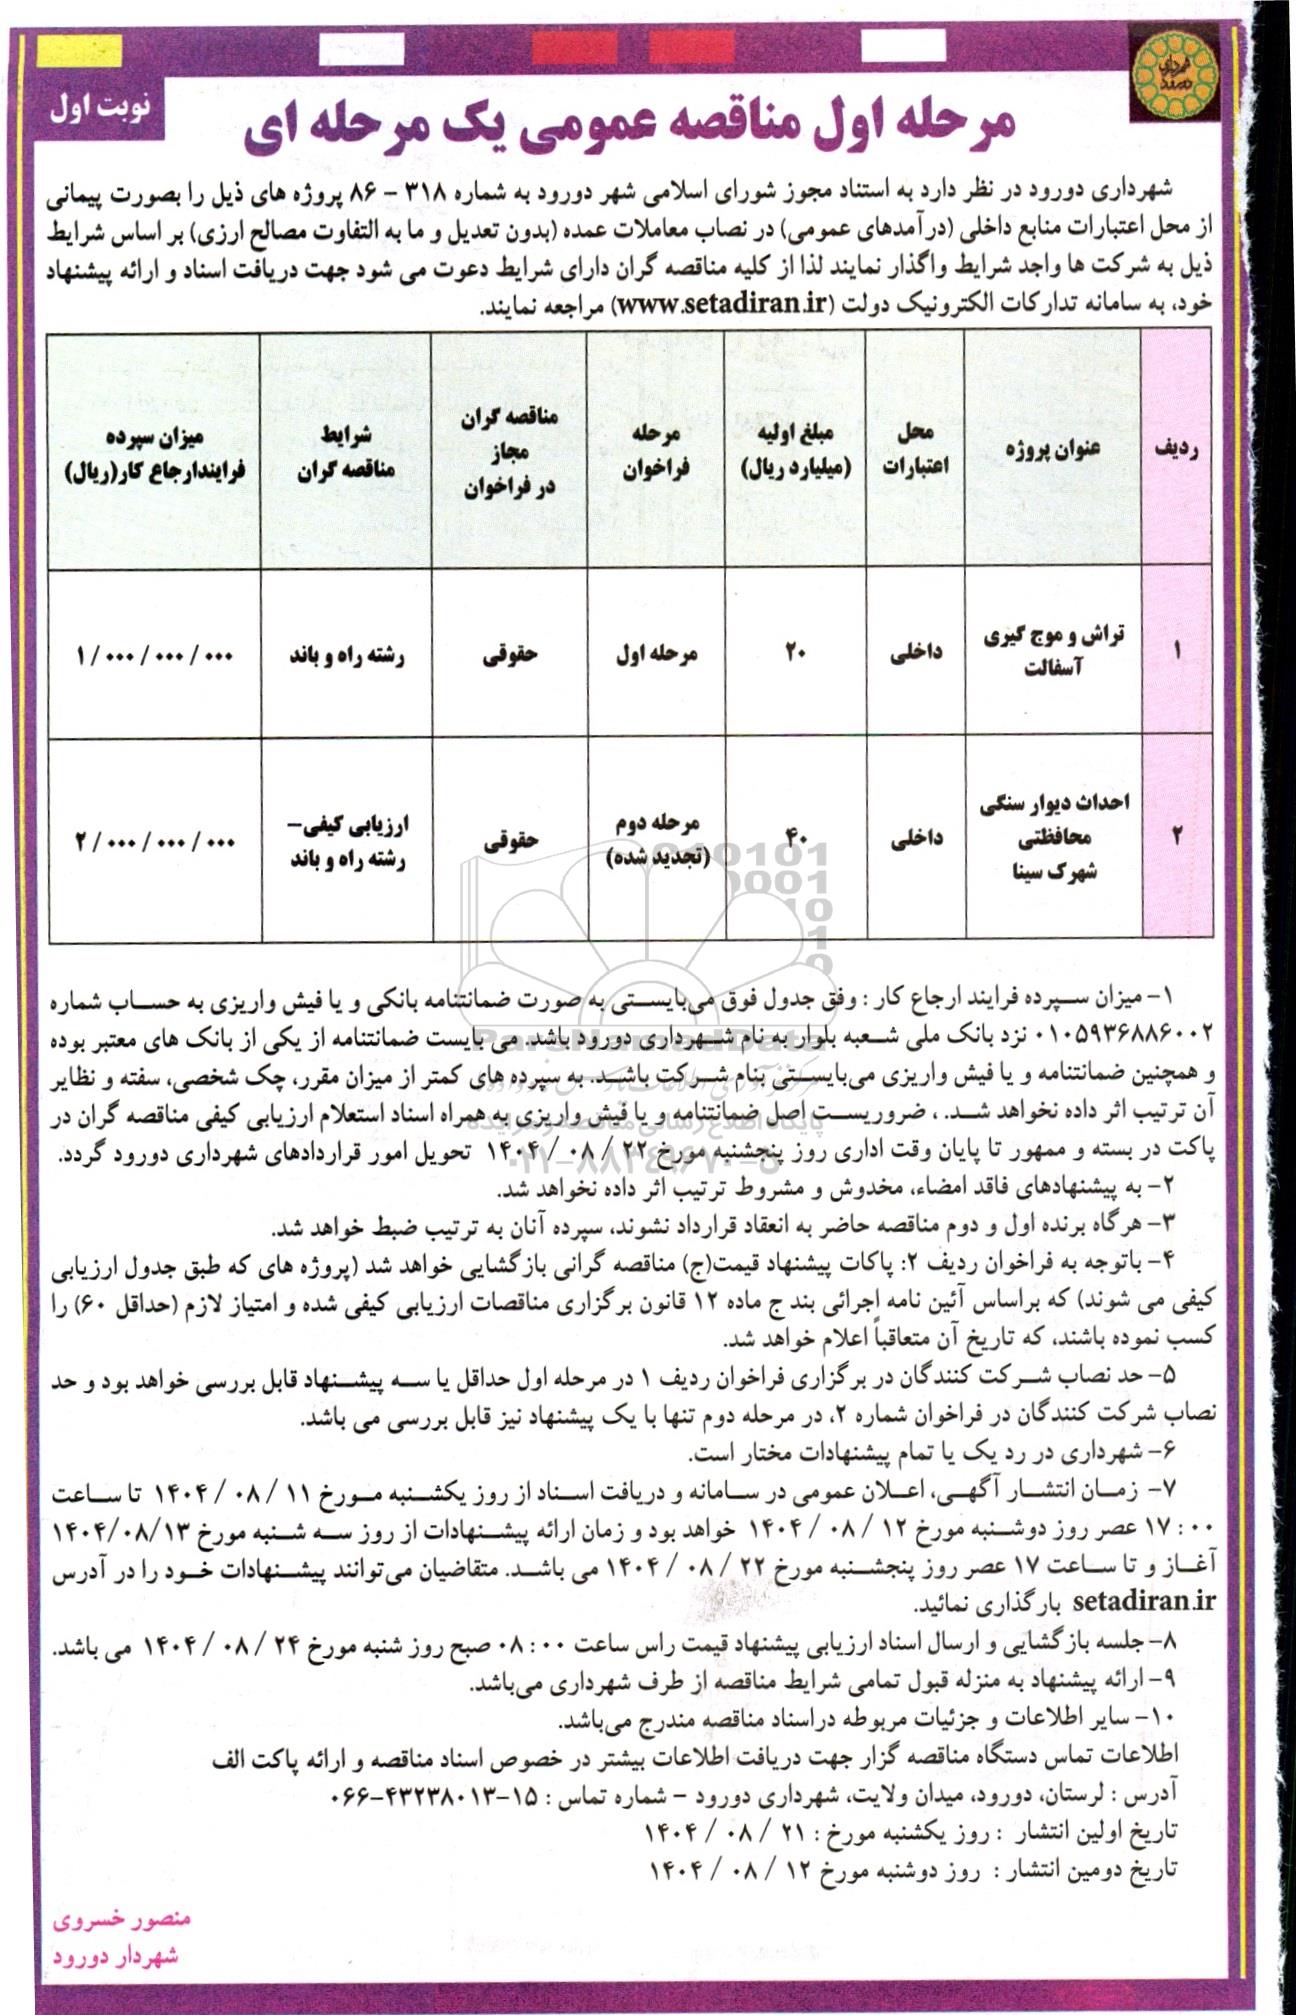 شهرداری دورود
نوبت اول
مرحله اول مناقصه عمومی یک مرحله ای
شهرداری دورود در نظر دارد به استناد مجوز شورای اسلامی شهر دورود به شماره ۳۱۸ - ۸۶ پروژه های ذیل را بصورت پیمانی
از محل اعتبارات منابع داخلی (درآمدهای عمومی) در نصاب معاملات عمده (بدون تعدیل و ما به التفاوت مصالح ارزی) بر اساس شرایط
ذیل به شرکت ها واجد شرایط واگذار نمایند لذا از کلیه مناقصه گران دارای شرایط دعوت می شود جهت دریافت اسناد و ارائه پیشنهاد
خود، به سامانه تدارکات الکترونیک دولت (www.setadiran.ir) مراجعه نمایند.
ردیف | عنوان پروژه | محل اعتبارات | مبلغ اولیه (میلیارد ریال) | مرحله فراخوان | مناقصه گران مجاز در فراخوان | شرایط مناقصه گران | میزان سپرده فرایندارجاع کار(ریال)
۱ | تراش و موج گیری آسفالت | داخلی | ۲۰ | مرحله اول | حقوقی | رشته راه و باند | ۱/۰۰۰/۰۰۰/۰۰۰
۲ | احداث دیوار سنگی محافظتی شهرک سینا | داخلی | ۴۰ | مرحله دوم (تجدید شده) | حقوقی | ارزیابی کیفی- رشته راه و باند | ۲/۰۰۰/۰۰۰/۰۰۰
۱- میزان سپرده فرایند ارجاع کار : وفق جدول فوق می‌بایستی به صورت ضمانتنامه بانکی و یا فیش واریزی به حساب شماره
۰۱۰۵۹۳۶۸۸۶۰۰۲ نزد بانک ملی شعبه بلوار به نام شهرداری دورود باشد. می بایست ضمانتنامه از یکی از بانک های معتبر بوده
و همچنین ضمانتنامه و یا فیش واریزی می‌بایستی بنام شرکت باشد. به سپرده های کمتر از میزان مقرر، چک شخصی، سفته و نظایر
آن ترتیب اثر داده نخواهد شد. ، ضروریست اصل ضمانتنامه و یا فیش واریزی به همراه اسناد استعلام ارزیابی کیفی مناقصه گران در
پاکت در بسته و ممهور تا پایان وقت اداری روز پنجشنبه مورخ ۲۲ / ۰۸ / ۱۴۰۴ تحویل امور قراردادهای شهرداری دورود گردد.
۲- به پیشنهادهای فاقد امضاء، مخدوش و مشروط ترتیب اثر داده نخواهد شد.
۳- هرگاه برنده اول و دوم مناقصه حاضر به انعقاد قرارداد نشوند، سپرده آنان به ترتیب ضبط خواهد شد.
۴- باتوجه به فراخوان ردیف ۲: پاکات پیشنهاد قیمت(ج) مناقصه گرانی بازگشایی خواهد شد (پروژه های که طبق جدول ارزیابی
کیفی می شوند) که براساس آئین نامه اجرائی بند ج ماده ۱۲ قانون برگزاری مناقصات ارزیابی کیفی شده و امتیاز لازم (حداقل ۶۰) را
کسب نموده باشند، که تاریخ آن متعاقباً اعلام خواهد شد.
۵- حد نصاب شرکت کنندگان در برگزاری فراخوان ردیف ۱ در مرحله اول حداقل یا سه پیشنهاد قابل بررسی خواهد بود و حد
نصاب شرکت کنندگان در فراخوان شماره ۲، در مرحله دوم تنها با یک پیشنهاد نیز قابل بررسی می باشد.
۶- شهرداری در رد یک یا تمام پیشنهادات مختار است.
۷- زمان انتشار آگهی، اعلان عمومی در سامانه و دریافت اسناد از روز یکشنبه مورخ ۱۱ / ۰۸ / ۱۴۰۴ تا ساعت
۱۷:۰۰ عصر روز دوشنبه مورخ ۱۲ / ۰۸ / ۱۴۰۴ خواهد بود و زمان ارائه پیشنهادات از روز سه شنبه مورخ ۱۴۰۴/۰۸/۱۳
آغاز و تا ساعت ۱۷ عصر روز پنجشنبه مورخ ۲۲ / ۰۸ / ۱۴۰۴ می باشد. متقاضیان می‌توانند پیشنهادات خود را در آدرس
setadiran.ir بارگذاری نمائید.
۸- جلسه بازگشایی و ارسال اسناد ارزیابی پیشنهاد قیمت راس ساعت ۰۸:۰۰ صبح روز شنبه مورخ ۲۴ / ۰۸ / ۱۴۰۴ می باشد.
۹- ارائه پیشنهاد به منزله قبول تمامی شرایط مناقصه از طرف شهرداری می‌باشد.
۱۰- سایر اطلاعات و جزئیات مربوطه دراسناد مناقصه مندرج می‌باشد.
اطلاعات تماس دستگاه مناقصه گزار جهت دریافت اطلاعات بیشتر در خصوص اسناد مناقصه و ارائه پاکت الف
آدرس : لرستان، دورود، میدان ولایت، شهرداری دورود - شماره تماس : ۱۵-۴۳۲۳۸۰۱۳-۰۶۶
تاریخ اولین انتشار : روز یکشنبه مورخ : ۲۱ / ۰۸ / ۱۴۰۴
تاریخ دومین انتشار : روز دوشنبه مورخ ۱۲ / ۰۸ / ۱۴۰۴
منصور خسروی
شهردار دورود
ParsNamadData
پایگاه اطلاع رسانی مناقصه و مزایده
۰۲۱-۸۸۳۴۹۶۷۰-۵